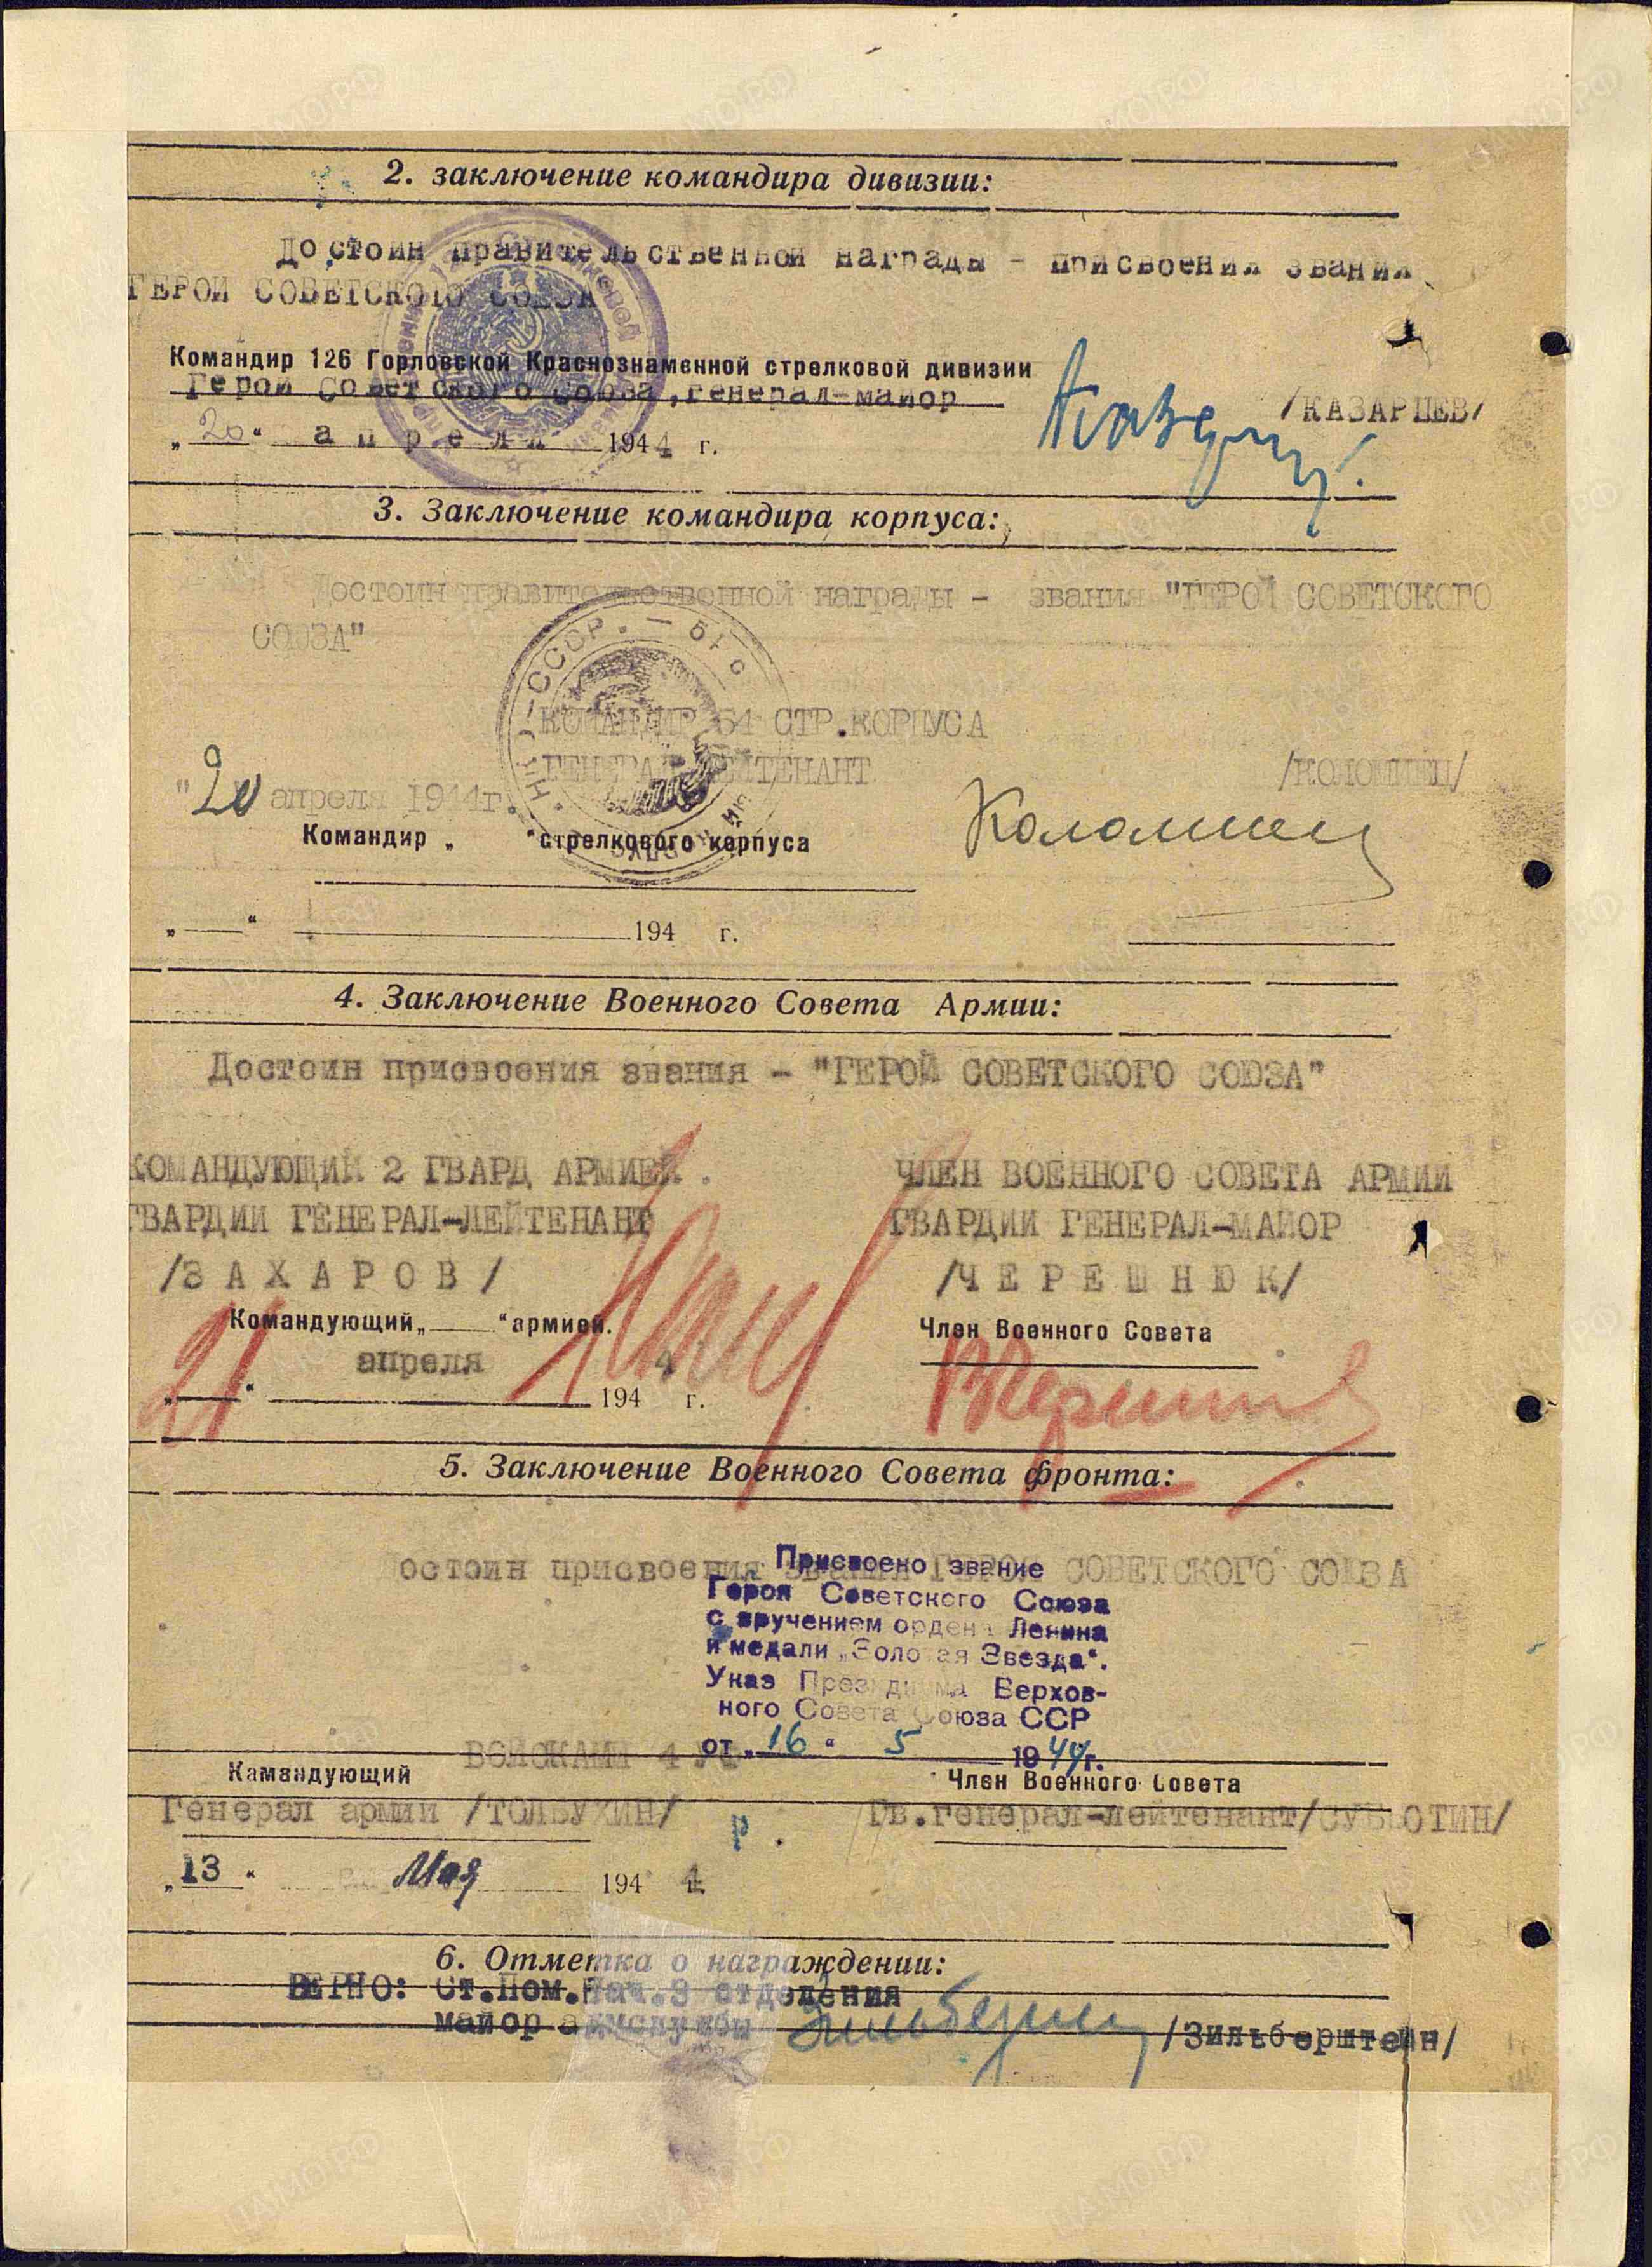 2. заключение командира дивизии:
Достоин правительственной награды - присвоения звания
ГЕРОЙ СОВЕТСКОГО СОЮЗА
Командир 126 Горловской Краснознаменной стрелковой дивизии
Герой Советского Союза, генерал-майор
/КАЗАРЦЕВ/
„20“ апреля 1944 г.
3. Заключение командира корпуса:
Достоин правительственной награды - звания "ГЕРОЙ СОВЕТСКОГО
СОЮЗА"
КОМАНДИР 54 СТР.КОРПУСА
ГЕНЕРАЛ-ЛЕЙТЕНАНТ
/КОЛОМИЕЦ/
"20 апреля 1944г.
Коломиец
Командир „ “стрелкового корпуса
„ “ 194 г.
4. Заключение Военного Совета Армии:
Достоин присвоения звания - "ГЕРОЙ СОВЕТСКОГО СОЮЗА"
КОМАНДУЮЩИЙ 2 ГВАРД АРМИЕЙ. ЧЛЕН ВОЕННОГО СОВЕТА АРМИИ
ГВАРДИИ ГЕНЕРАЛ-ЛЕЙТЕНАНТ ГВАРДИИ ГЕНЕРАЛ-МАЙОР
/ЗАХАРОВ/ /ЧЕРЕШНЮК/
Командующий„ “армией. Член Военного Совета
„21“ апреля 1944 г.
5. Заключение Военного Совета фронта:
Достоин присвоения звания ГЕРОЯ СОВЕТСКОГО СОЮЗА
Присвоено звание
Героя Советского Союза
с вручением ордена Ленина
и медали „Золотая Звезда“.
Указ Президиума Верхов-
ного Совета Союза ССР
от „16“ 5 1944г.
ВОЙСКАМИ 4
Камандующий Член Военного Совета
Генерал армии /ТОЛБУХИН/ Гв.генерал-лейтенант/СУББОТИН/
р.
„13“ Мая 1944
6. Отметка о награждении:
ВЕРНО: Ст.Пом.Нач.3 отделения
майор адмслужбы /Зильберштейн/